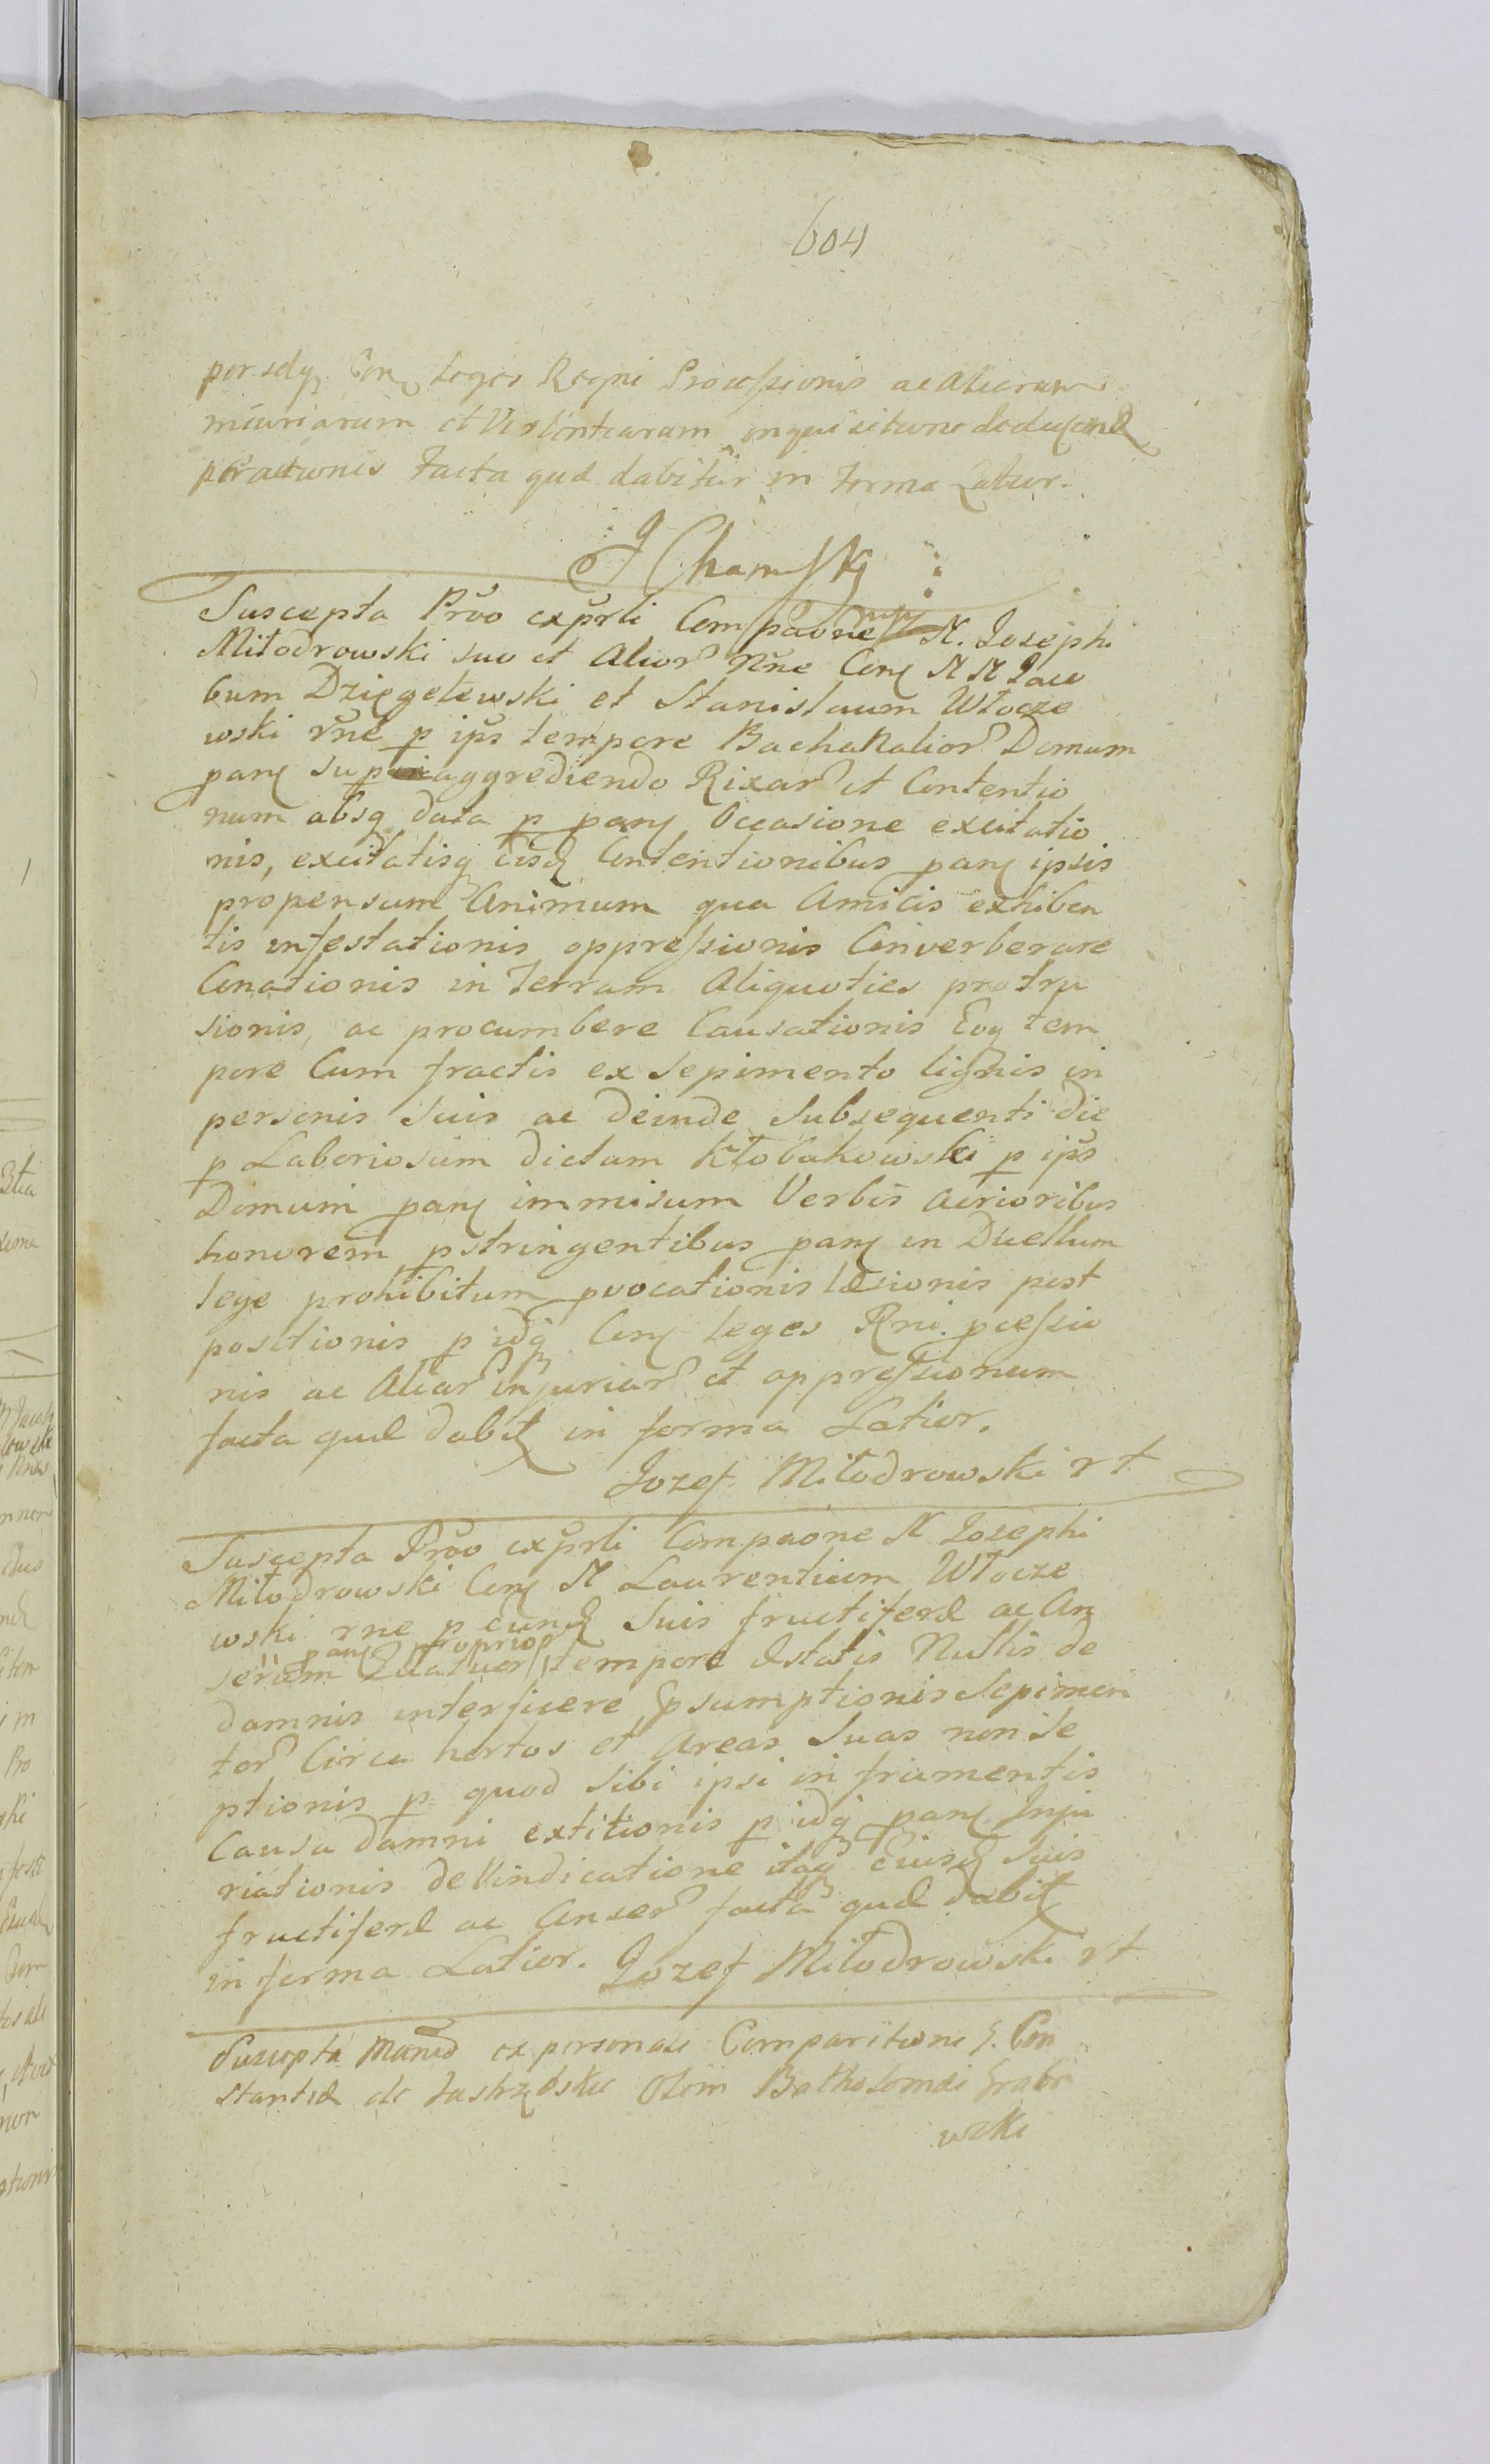 604
per idq. Con leges Regni Processionis ac aliarum
iniuriarum et Violentiarum inquisitione deducend
peractionis facta quae dabitur in forma Latior.
J Chamski
Suscepta Prvo exprli Compaone N. Josephi
Miłodrowski suo et Alior nne Con N N Jaco
bum Dzięgelewski et Stanislaum Włocze
wski rne p ips tempore Bachanalior Domum
pan aggrediendo Rixar et Contentio
num absq data p pan Occasione excitatio
nis, excitatisq eisd Contentionibus pan ipsis
propensum Animum qua Amicis exhiben
tis infestationis oppressionis Converberare
Conationis in terram Aliquoties protru
sionis, ac procumbere Causationis Eoq tem
pore Cum fractis ex sepimento lignis in
personis suis ac deinde subsequenti die
p Laboriosum dictum Kłobukowski p ips
Domum pan immisum Verbis acrioribus
honorem pstringentibus pan in Duellum
lege prohibitum pvocationis laesionis post
positionis p idq Con leges Rni pcessio
nis ac Aliar injuriar et oppressionum
facta quae dabit in forma Latior.
Jozef Miłodrowski rt
Suscepta Prvo exprli Compaone N Josephi
Miłodrowski Con N Laurentium Włocze
wski rne p eund Suis fructiferae ac An
serum pan Quatuor propriar tempore aestatis Nullis de
damnis interficere psumptionis Sepimen
tor Circa hortos et Areas suas non se
ptionis p quod sibi ipsi in frumentis
Causa damni extitionis p idq pan Inju
riationis de Vindicatione itaq eiusd Suis
fructiferae ac Anser facta quae dabit
in forma Latior. Jozef Miłodrowski rt
Suscepta ex personali Comparitione G. Con
stantiae de Jastrzębskie Olim Batholomaei Grabo
wski